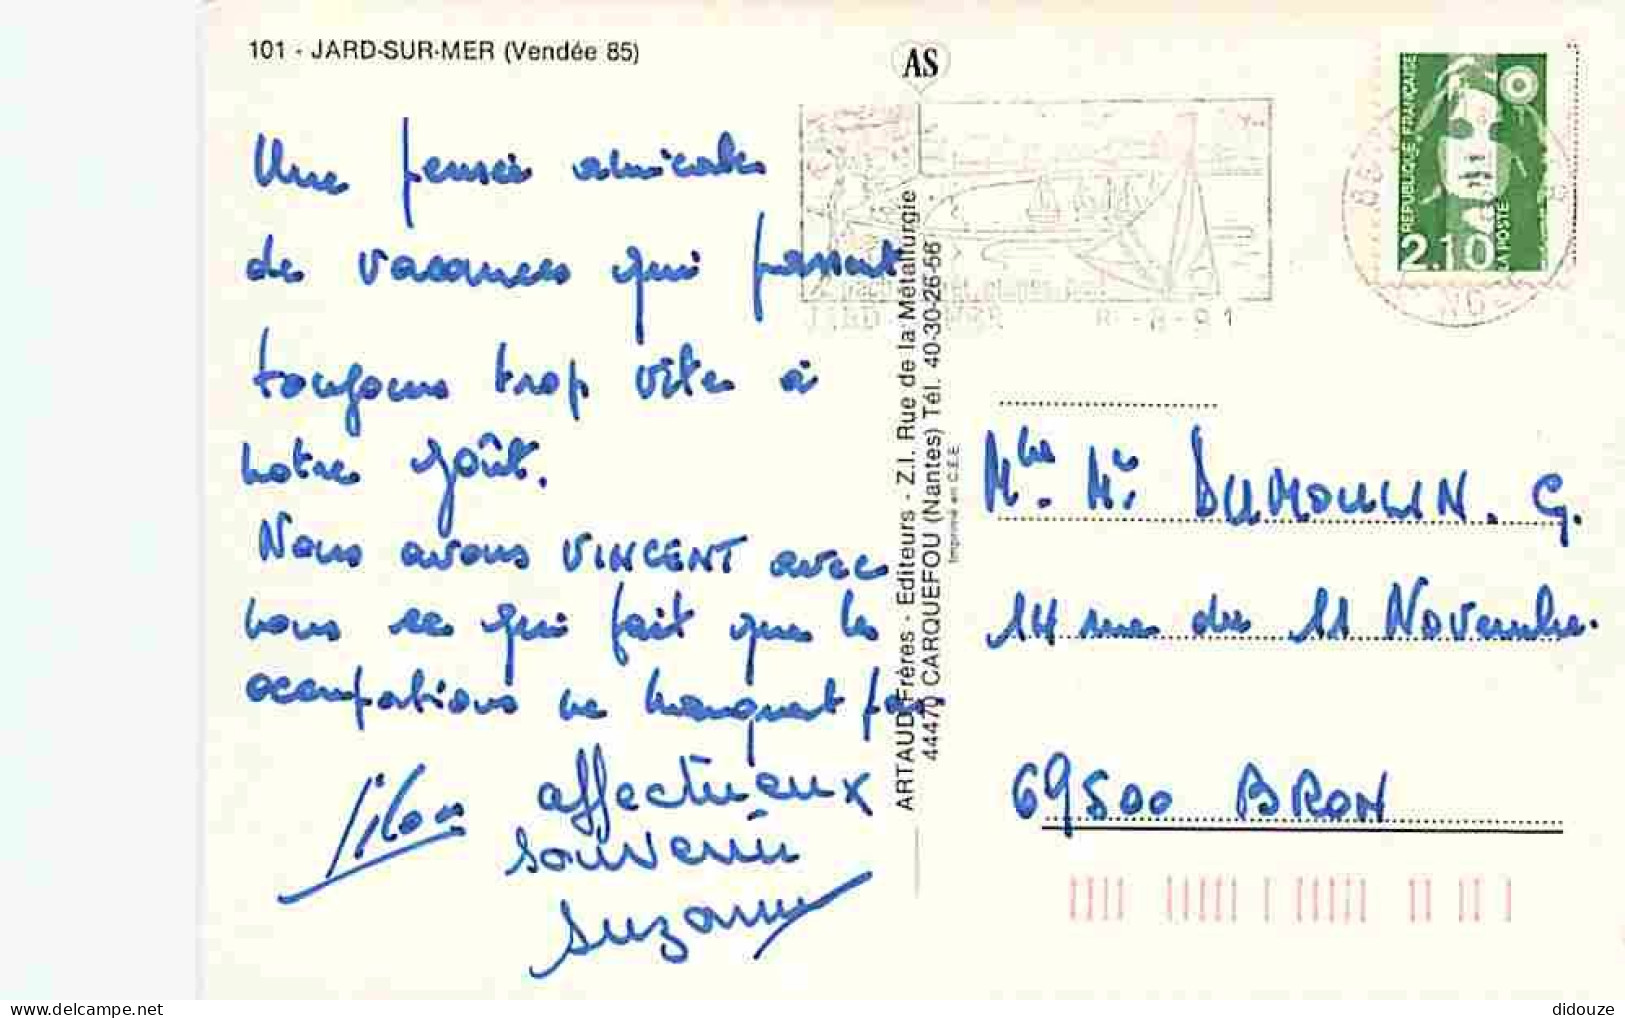 101 - JARD-SUR-MER (Vendée 85)
AS
Une pensée amicale
de vacances qui passent
toujours trop vite à
notre goût.
Nous avons VINCENT avec
nous ce qui fait que les
occupations ne manquent pas.
affectueux
souvenir
Suzanne
ARTAUD Frères - Editeurs - Z.I. Rue de la Métallurgie
44470 CARQUEFOU (Nantes) Tél. 40-30-26-56
Imprimé en C.E.E.
REPUBLIQUE FRANÇAISE
2.10
LA POSTE
8-8-91
Mme. Mr DUMOULIN. G.
14 rue du 11 Novembre.
69500 BRON
didouze